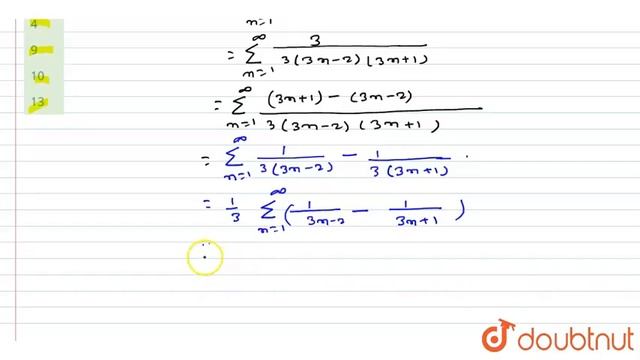 4
9
10
13
n=1
= ∑_{n=1}^{∞} 3 / 3(3n-2)(3n+1)
= ∑_{n=1}^{∞} (3n+1) - (3n-2) / 3(3n-2)(3n+1)
= ∑_{n=1}^{∞} 1 / 3(3n-2) - 1 / 3(3n+1) .
= 1/3 ∑_{n=1}^{∞} ( 1 / 3n-2 - 1 / 3n+1 )
doubtnut